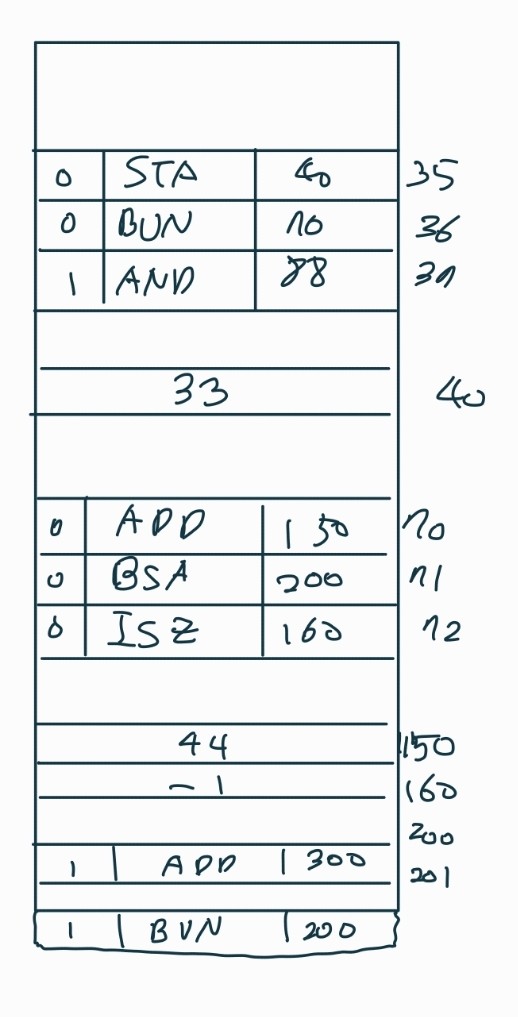 0 STA 40 35
0 BUN 70 36
1 AND 88 37
33 40
0 ADD 150 70
0 BSA 200 71
0 ISZ 160 72
44 150
-1 160
200
1 ADD 300 201
1 BUN 200